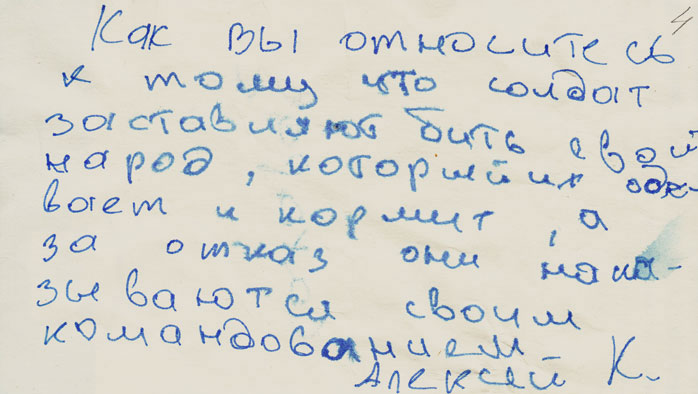 4
Как вы относитесь
к тому что солдат
заставляют бить свой
народ, который их оде-
вает и кормит, а
за отказ они нака-
зываются своим
командованием
Алексей К.